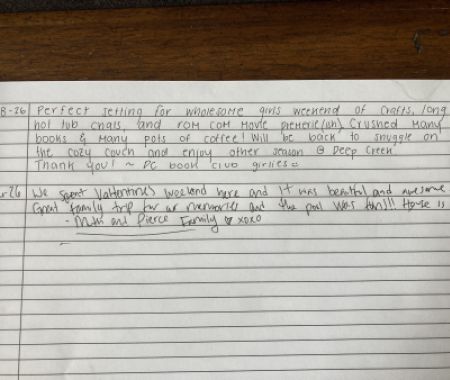 8-26 Perfect setting for wholesome girls weekend of crafts, long
hot tub chats, and rom com movie Crushed many
books & many pots of coffee! Will be back to snuggle on
the cozy couch and enjoy other season @ Deep Creek
Thank you! ~ PC book club girlies
-26 We spent Valentine's weekend here and it was beautiful and awesome
Great family trip for our memories and the pool was fun!!! House is
- and Pierce Family xoxo